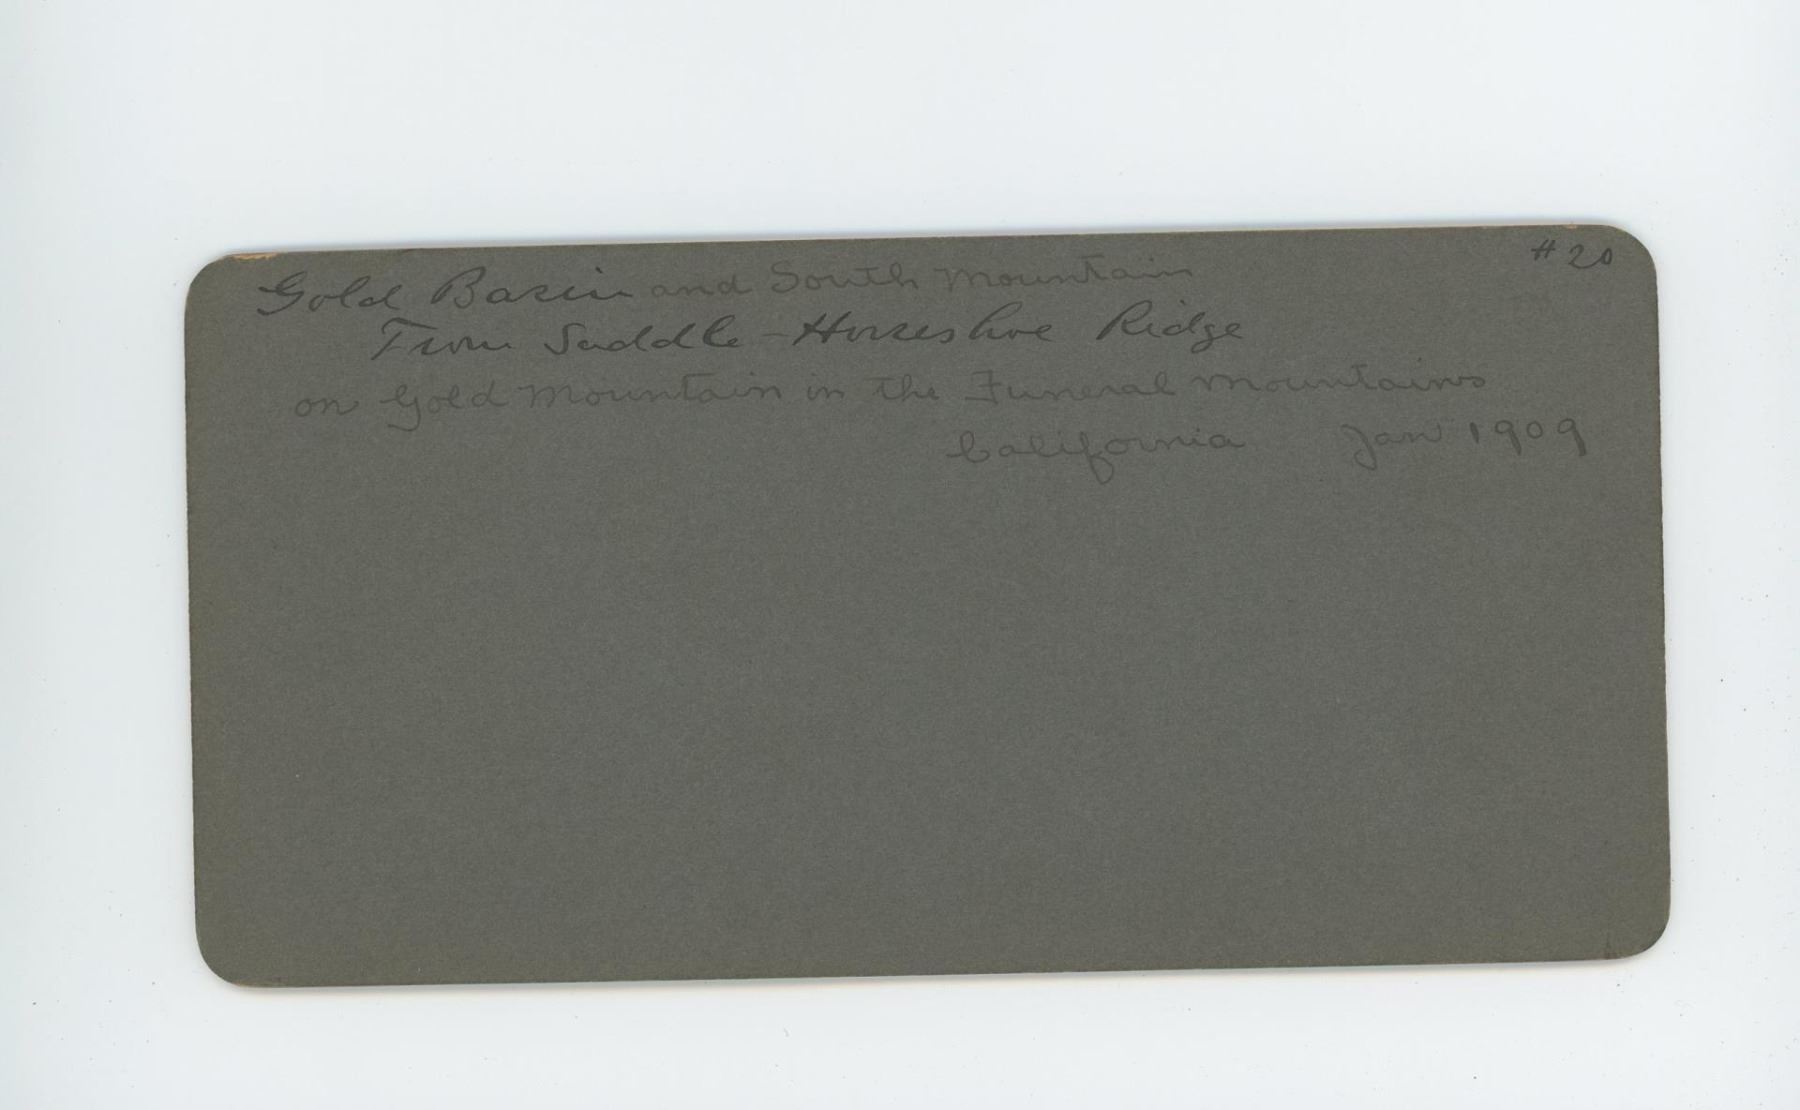 # 20
Gold Basin and South Mountain
From Saddle - Horseshoe Ridge
on Gold Mountain in the Funeral Mountains
California Jan 1909